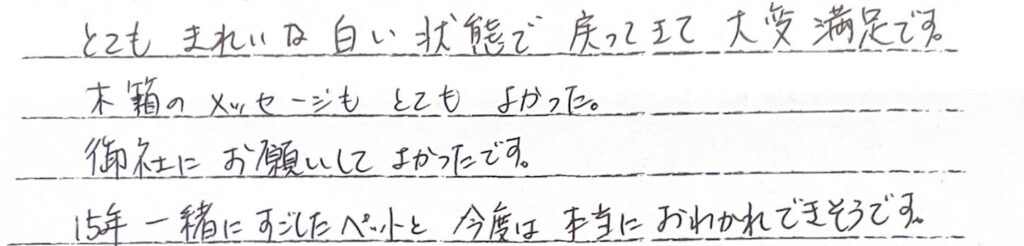 とても きれいな 白い 状態で 戻ってきて 大変 満足です。
木箱の メッセージも とても よかった。
御社に お願いして よかったです。
15年 一緒に すごしたペットと 今度は 本当に おわかれできそうです。